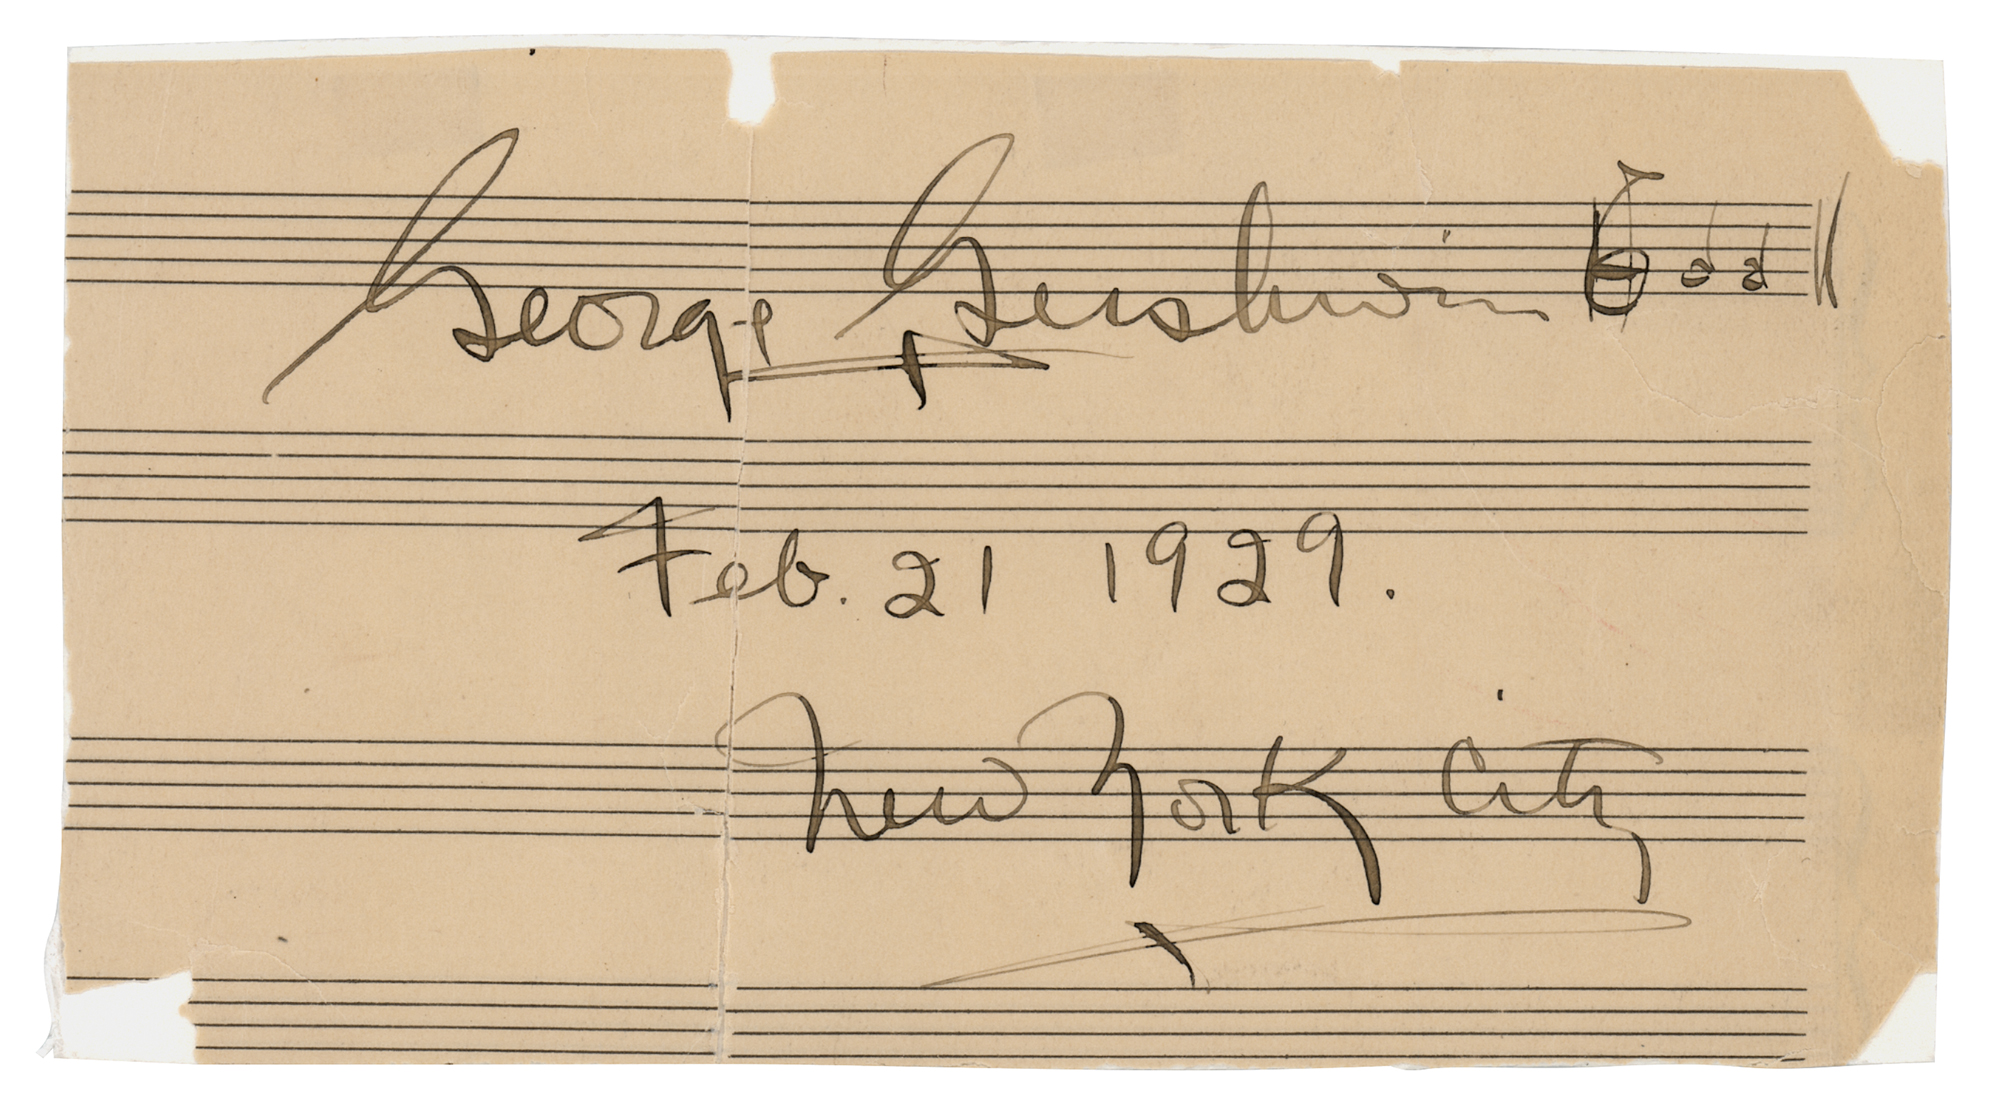 George Gershwin
Feb. 21 1929.
New York City